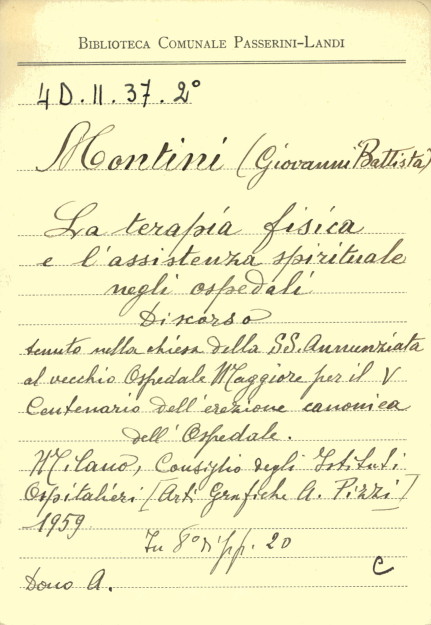 BIBLIOTECA COMUNALE PASSERINI-LANDI
4D.II.37.2°
Montini (Giovanni Battista)
La terapia fisica
e l'assistenza spirituale
negli ospedali
Discorso
tenuto nella chiesa della SS. Annunziata
al vecchio Ospedale Maggiore per il V
Centenario dell'erezione canonica
dell'Ospedale.
Milano, Consiglio degli Istituti
Ospitalieri [Arti Grafiche A. Pizzi]
1959
In 8° di pp. 20
C
Dono A.